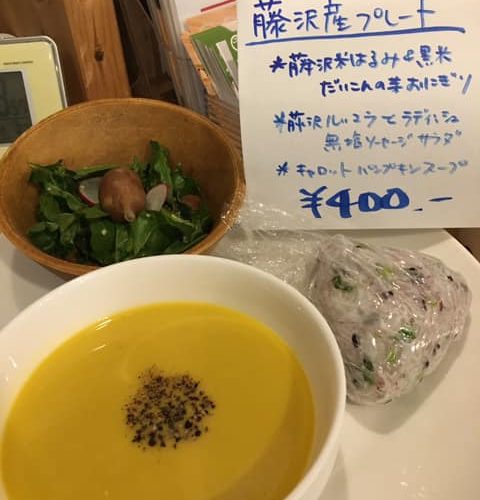 藤沢産プレート
*藤沢米はるみ&黒米
だいこんの芽おにぎり
*藤沢ルッコラとラディシュ
黒塩ソーセージサラダ
*キャロットパンプキンスープ
¥400.-